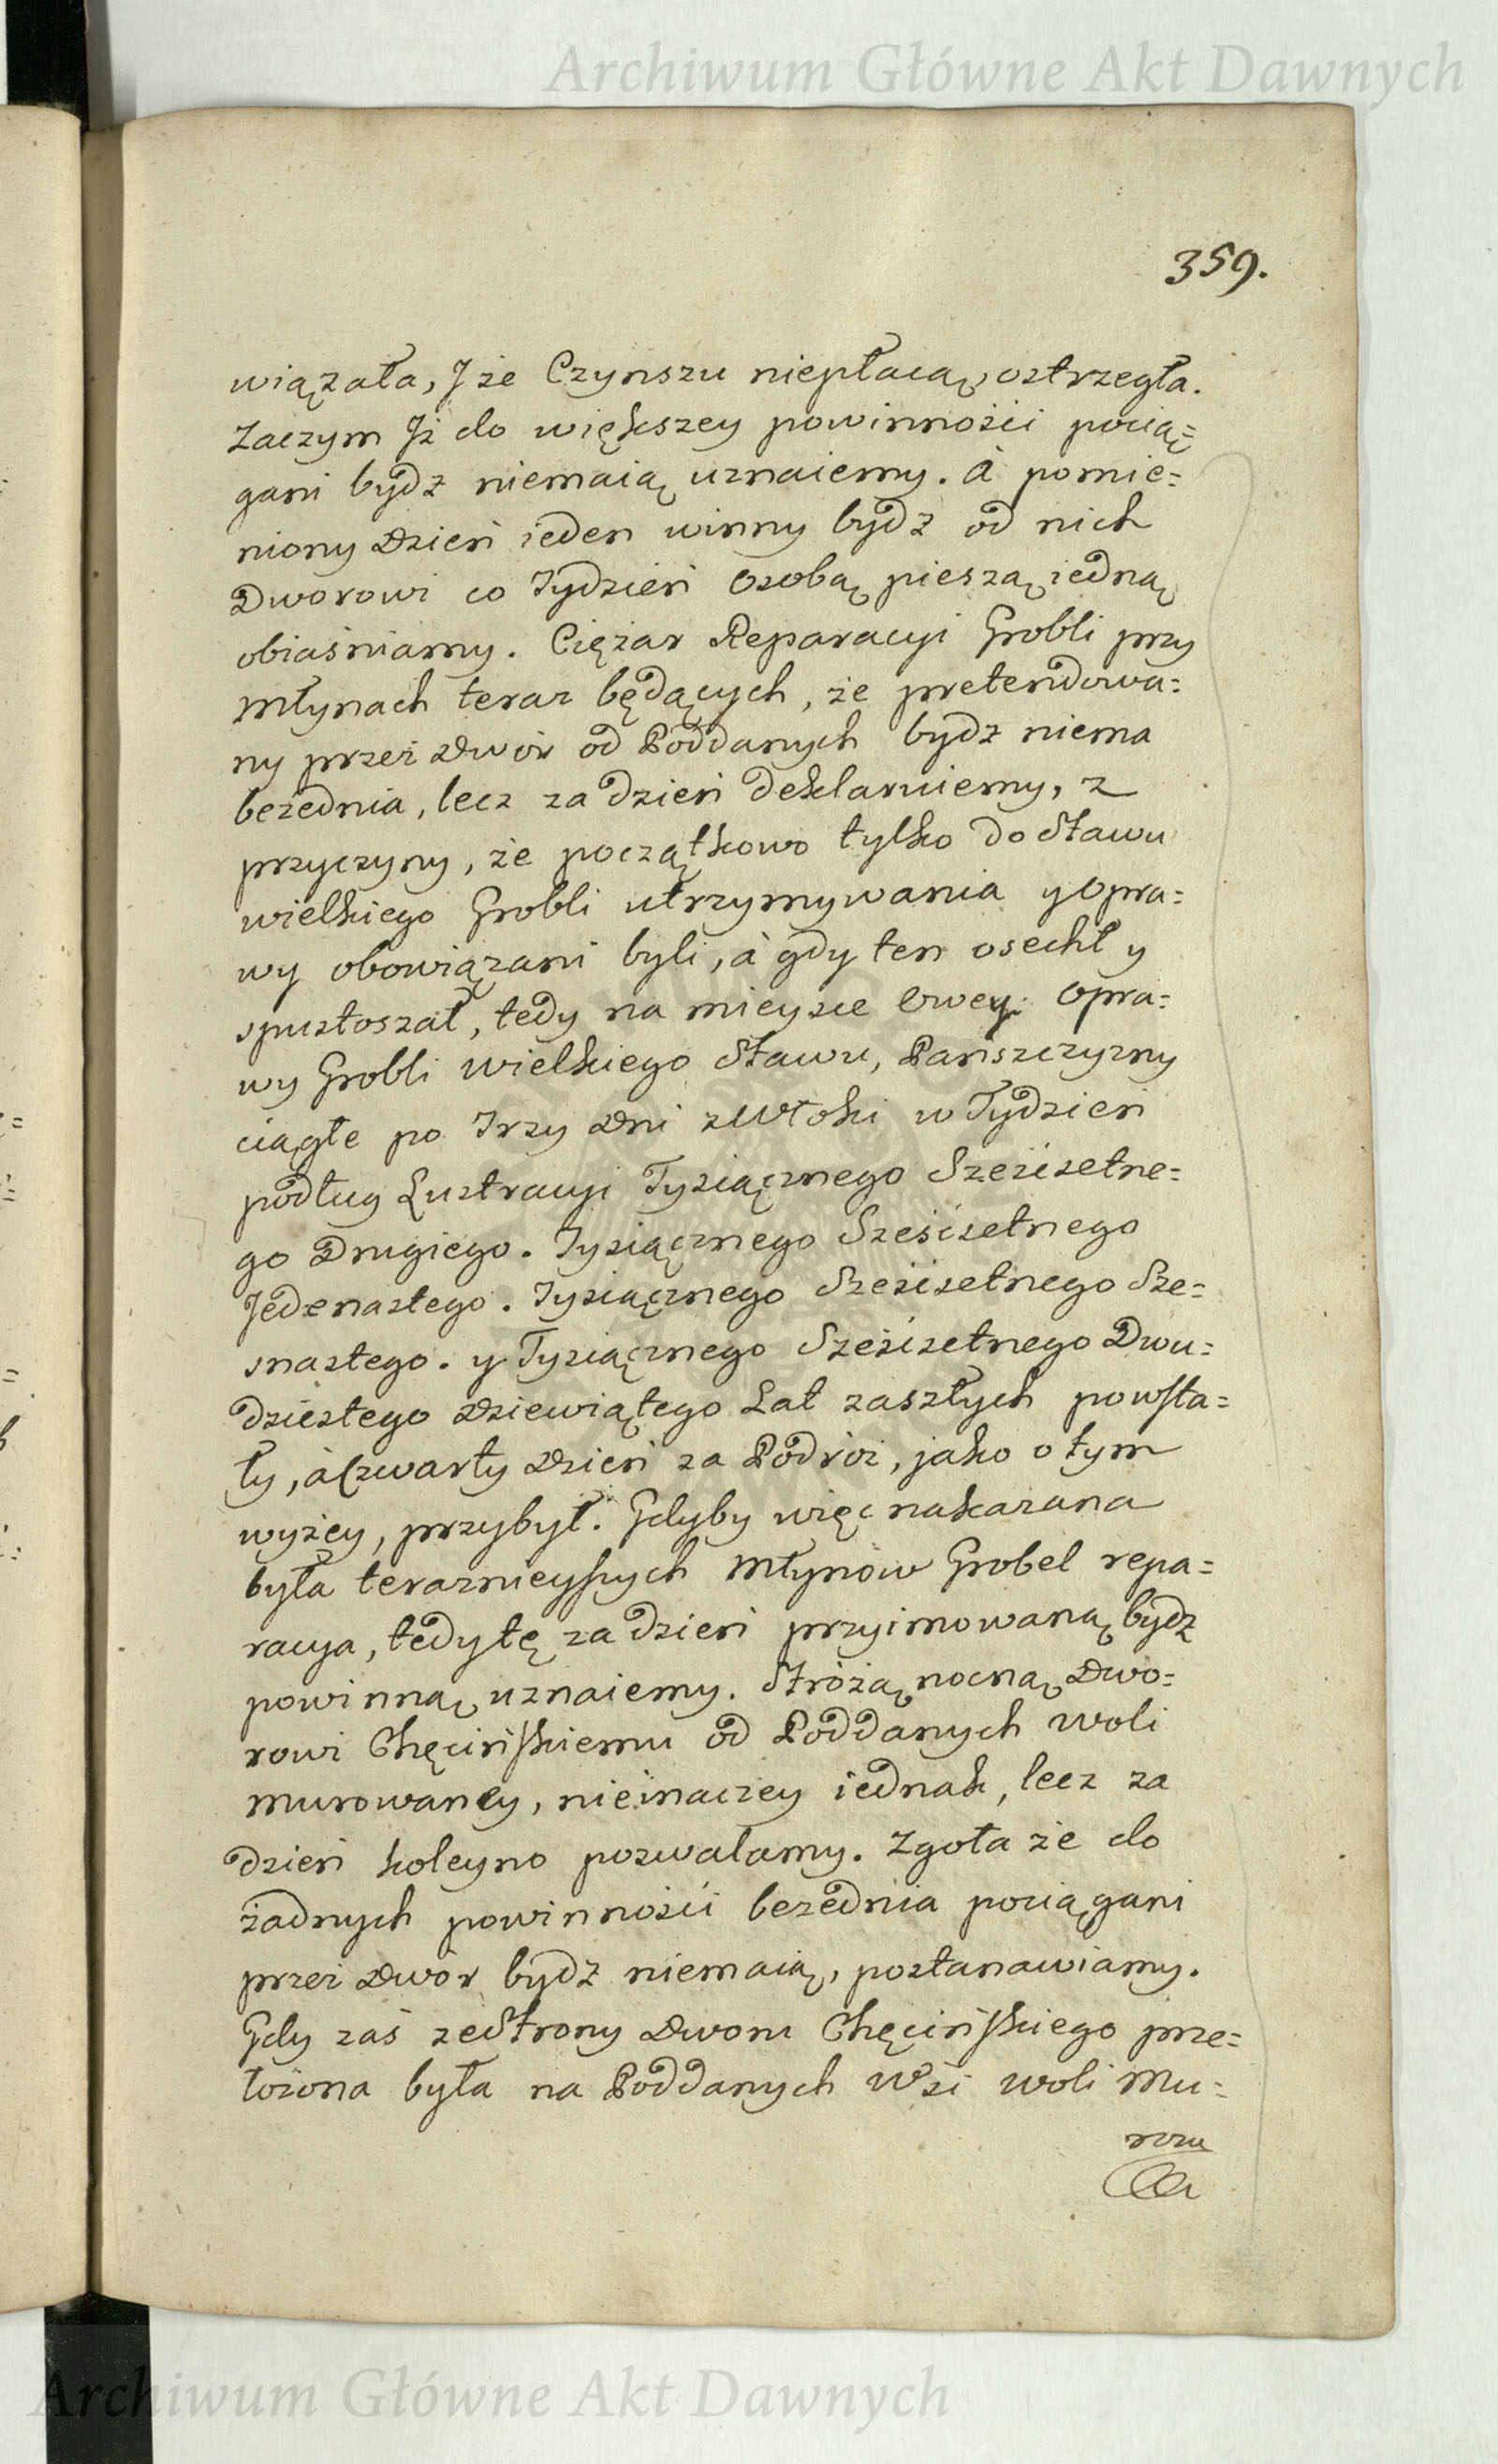 Archiwum Główne Akt Dawnych
359.
wiązała, Jże Czynszu niepłacą, ostrzegła.
Zaczym Jż do większey powinności pocią=
gani bydz niemaią uznaiemy. à pomie=
niony Dzień ieden winny bydz od nich
Dworowi co Tydzień Osobą pieszą iedną
obiaśniamy. Ciężar Reparacyi Grobli przy
Młynach teraz będących, że pretendowa=
ny przez Dwór od Poddanych bydz niema
bezednia, lecz za dzień deklaruiemy, z
przyczyny, że początkowo tylko do Stawu
wielkiego Grobli utrzymywania y Opra=
wy obowiązani byli, à gdy ten osechł y
spustoszał, tedy na mieysce Owey Opra=
wy Grobli wielkiego Stawu, Pańszczyzny
ciągłe po Trzy Dni z Włoki w Tydzień
podług Lustracyi Tysiącznego Sześćsetne=
go Drugiego. Tysiącznego Sześćsetnego
Jedenastego. Tysiącznego Sześćsetnego Sze=
snastego. y Tysiącznego Sześćsetnego Dwu=
dziestego Dziewiątego Lat zaszłych powsta=
ły, à Czwarty Dzień za Podróż, jako o tym
wyżey, przybył. Gdyby więc nakazana
była teraznieyszych Młynów Grobel repa=
racya, tedy tę za dzień przyimowaną bydz
powinną uznaiemy. Stróżą nocną Dwo=
rowi Chęcińskiemu od Poddanych Woli
murowaney, nieinaczey iednak, lecz za
dzień koleyno pozwalamy. Zgoła że do
żadnych powinności bezednia pociągani
przez Dwór bydz niemaią, postanawiamy.
Gdy zaś ze Strony Dworu Chęcińskiego prze=
łożona była na Poddanych Wsi Woli Mu=
rowa
Archiwum Główne Akt Dawnych